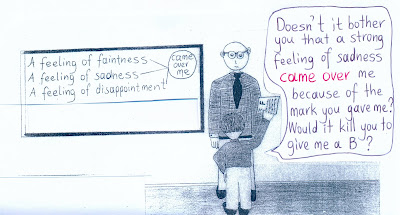 A feeling of faintness
A feeling of sadness
A feeling of disappointment
came
over
me
Doesn't it bother
you that a strong
feeling of sadness
came over me
because of the
mark you gave me?
Would it kill you to
give me a B ?